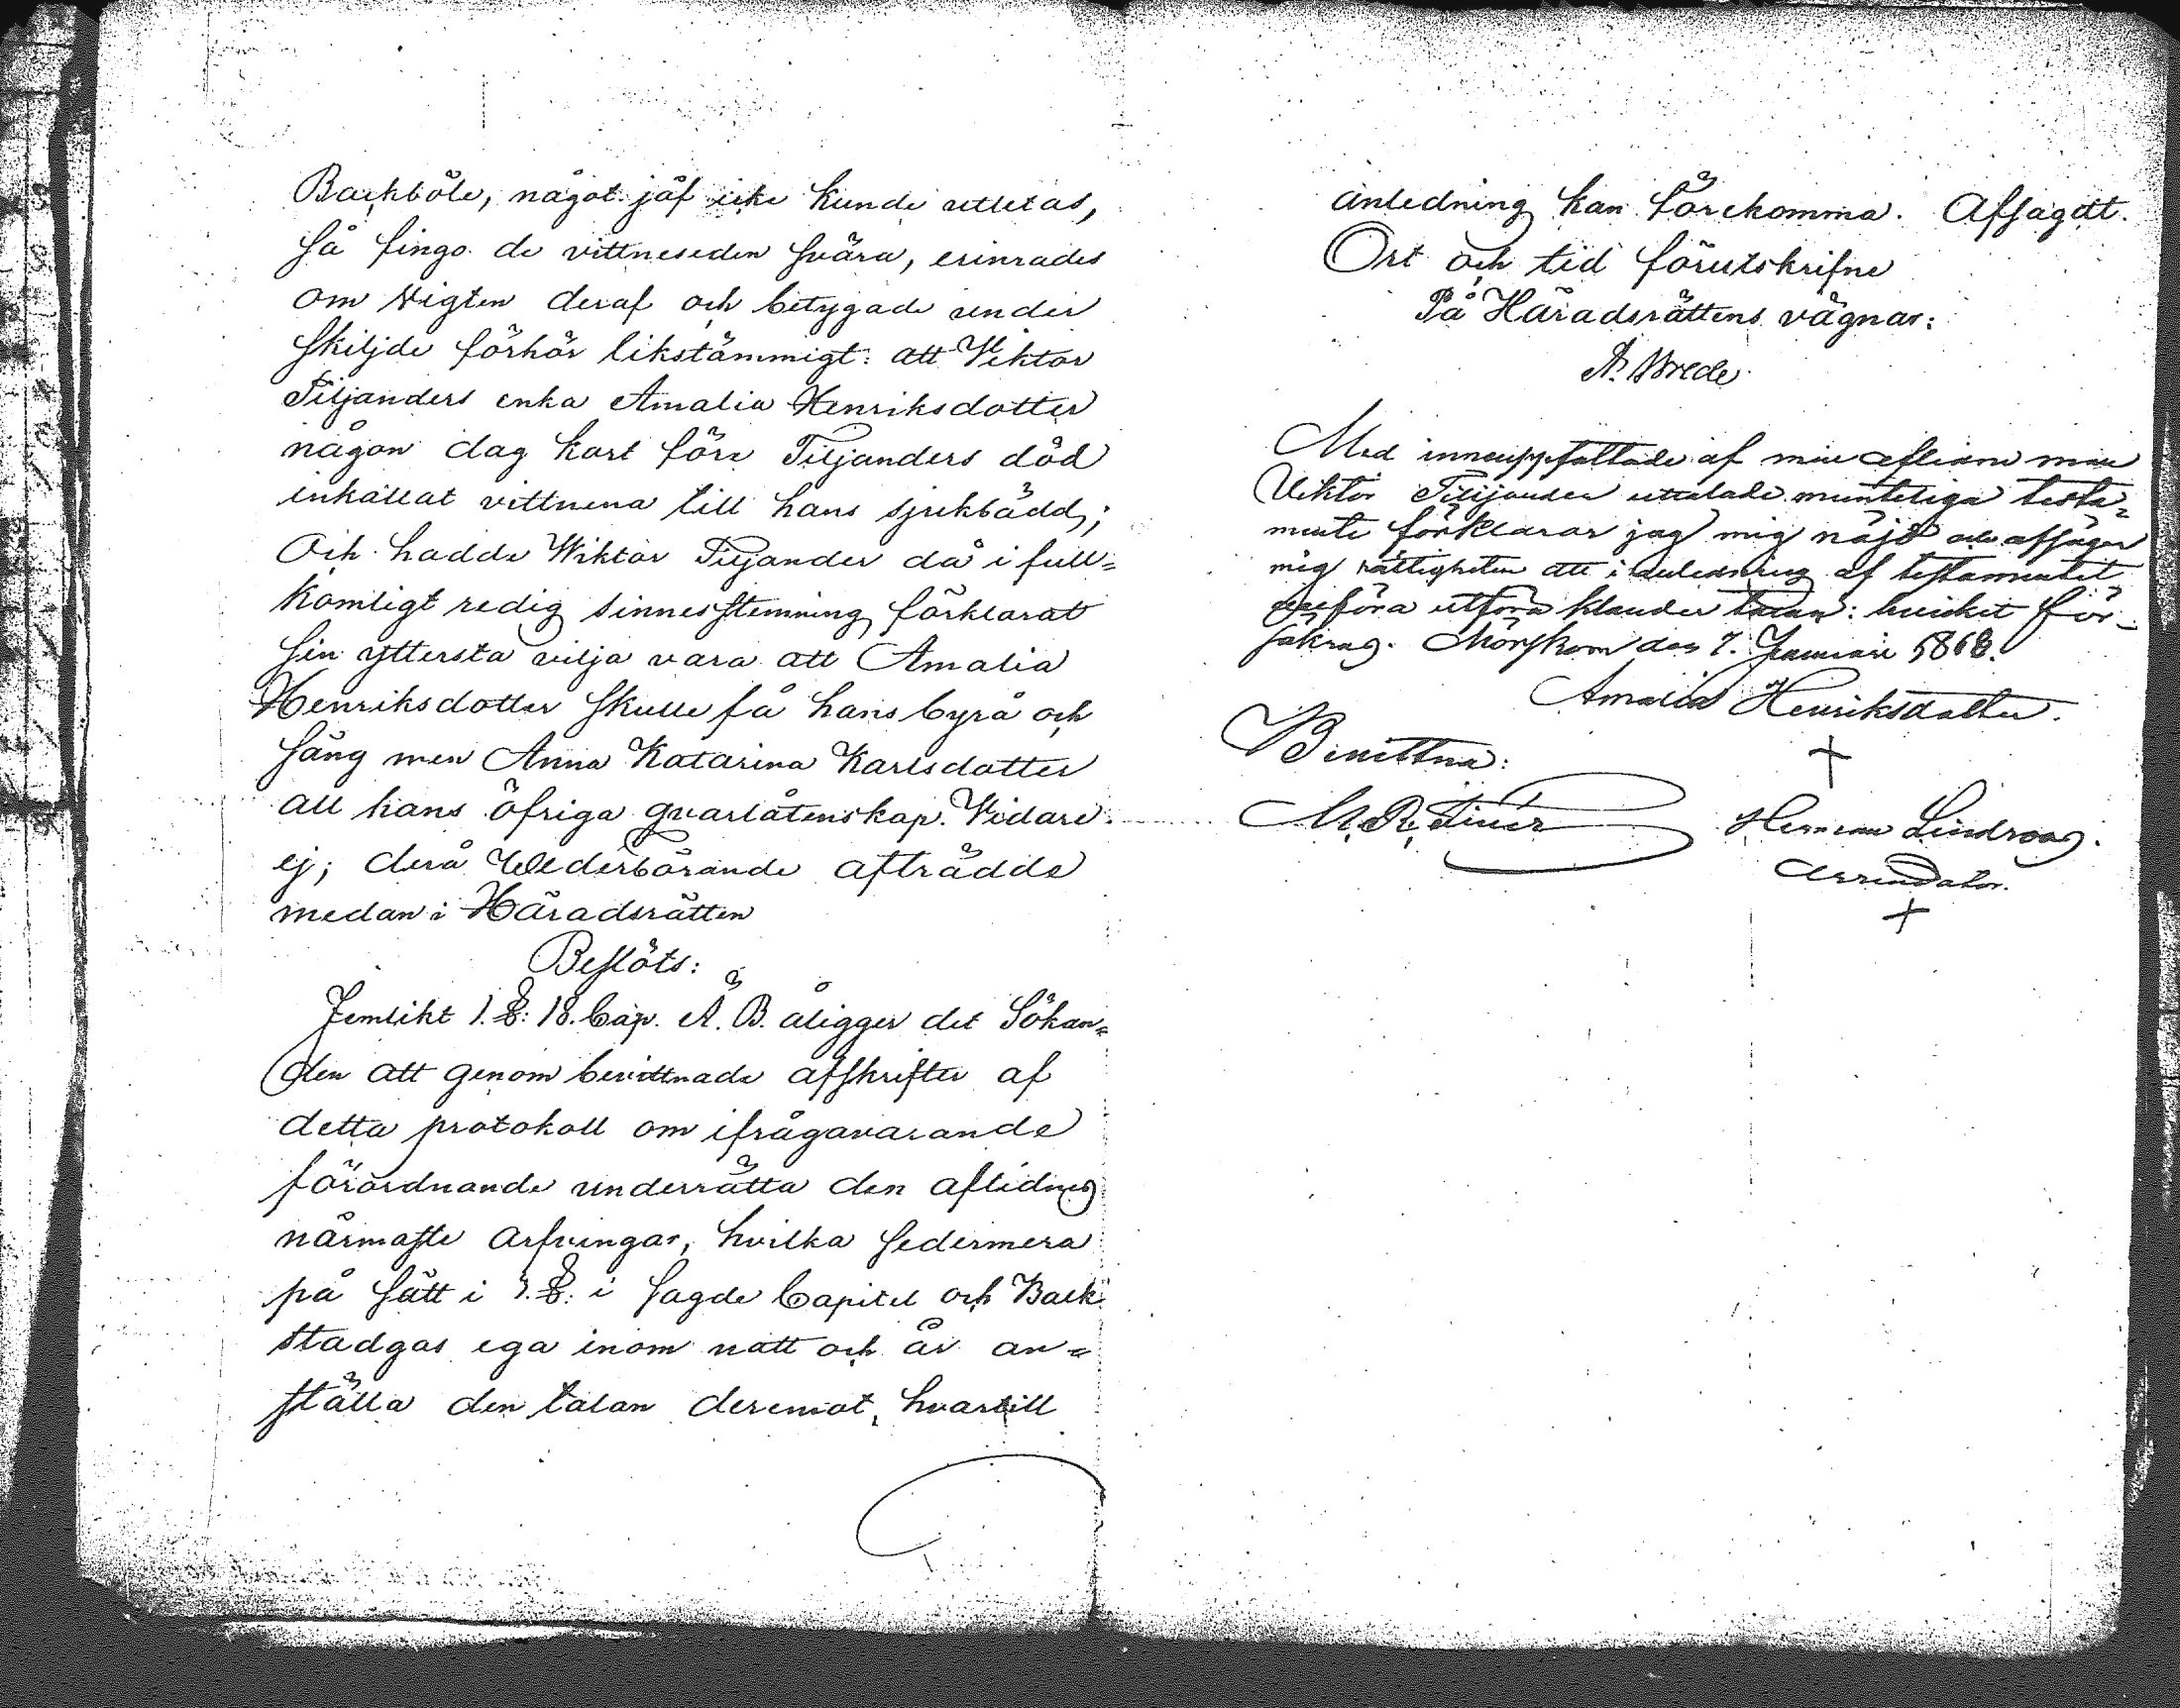 Backböle, något jäf icke kunde utletas,
så fingo de vittneseden svära, erinrades
om vigten deraf och betygade under
skiljde förhör likstämmigt: att Viktor
Tiljanders enka Amalia Henriksdotter
någon dag kort före Tiljanders död
inkallat vittnena till hans sjukbädd;
Och hadde Wiktor Tiljander då i full=
komligt redig sinnesstemning förklarat
sin yttersta vilja vara att Amalia
Henriksdotter skulle få hans byrå och
säng men Anna Katarina Karlsdotter
all hans öfriga qvarlåtenskap. Vidare
ej; derå Wederbörande afträdde
medan i Häradsrätten
Beslöts:
Jemlikt 1. §: 18. Cap. Ä. B. åligger det Sökan=
den att genom bevittnade afskrifter af
detta protokoll om ifrågavarande
förordnande underrätta den aflidnes
närmaste arfvingar, hvilka sedermera
på sätt i 1. §: i sagde Capitel och Balk
stadgas ega inom natt och år an=
ställa den talan deremot, hvartill
anledning kan förekomma. Afsagdt.
Ort och tid förutskrifne
På Häradsrättens vägnar:
A. Wrede
Med inneuppfattade af min aflidne man
Viktor Tilijander uttalade muntliga testa=
mente förklarar jag mig nöjd och afsäger
mig rättigheten att i anledning af testamentet
utföra klander talan: hvilket för-
säkras. Mörskom den 7. Januari 1868.
Amalia Henriksdotter.
Bevittna:
M. R. Herman Lindroos.
Arrendator.